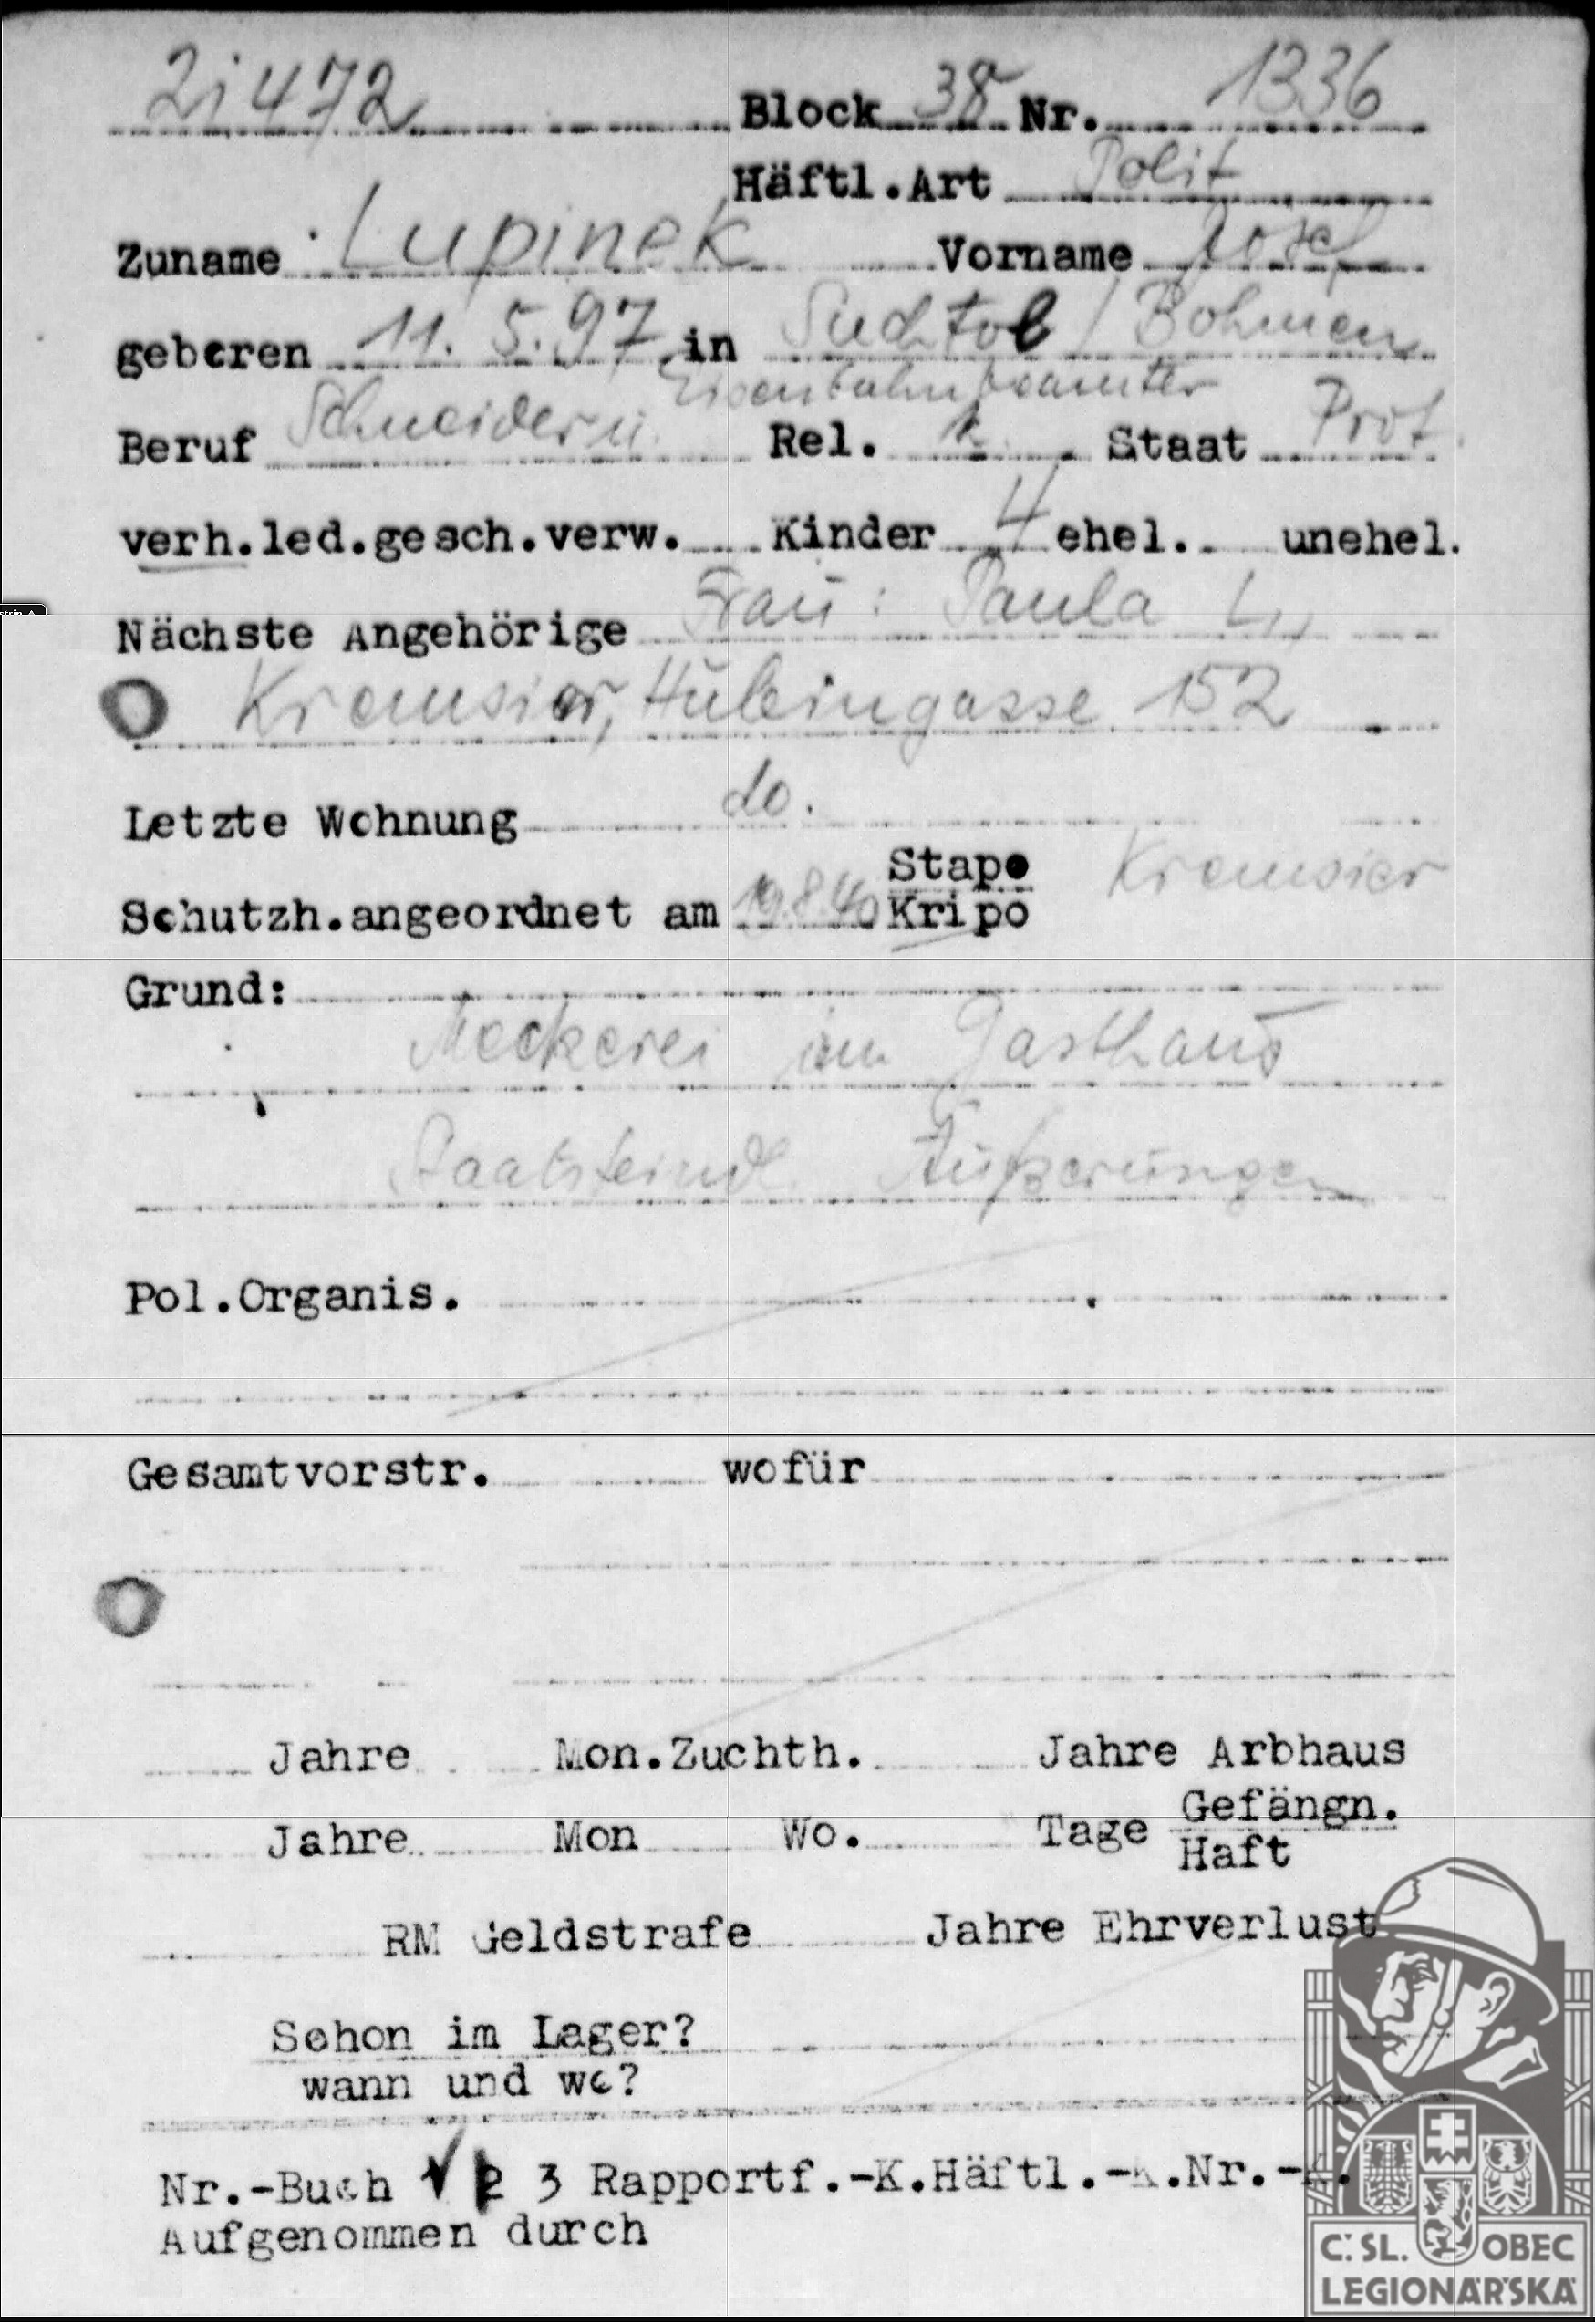 21472 Block 38 Nr. 1336
Häftl.Art Polit
Zuname Lupinek Vorname Josef
geboren 11. 5. 97 in Suchtol / Böhmen
Eisenbahnbeamter
Beruf Schneider u. Rel. k. Staat Prot.
verh.led.gesch.verw. Kinder 4 ehel. unehel.
Nächste Angehörige Frau: Paula L.,
Kremsier, Hulleingasse 152
Letzte Wohnung do.
Stapo Kremsier
Schutzh.angeordnet am 19.8.40 Kripo
Grund:
Meckerei im Gasthaus
Staatsfeindl. Äußerungen
Pol.Organis.
Gesamtvorstr. wofür
Jahre Mon.Zuchth. Jahre Arbhaus
Jahre Mon Wo. Tage Gefängn.
Haft
RM Geldstrafe Jahre Ehrverlust
Schon im Lager?
wann und wo?
Nr.-Buch 1 2 3 Rapportf.-K.Häftl.-K.Nr.-K.
Aufgenommen durch
Č.SL. OBEC
LEGIONÁŘSKÁ